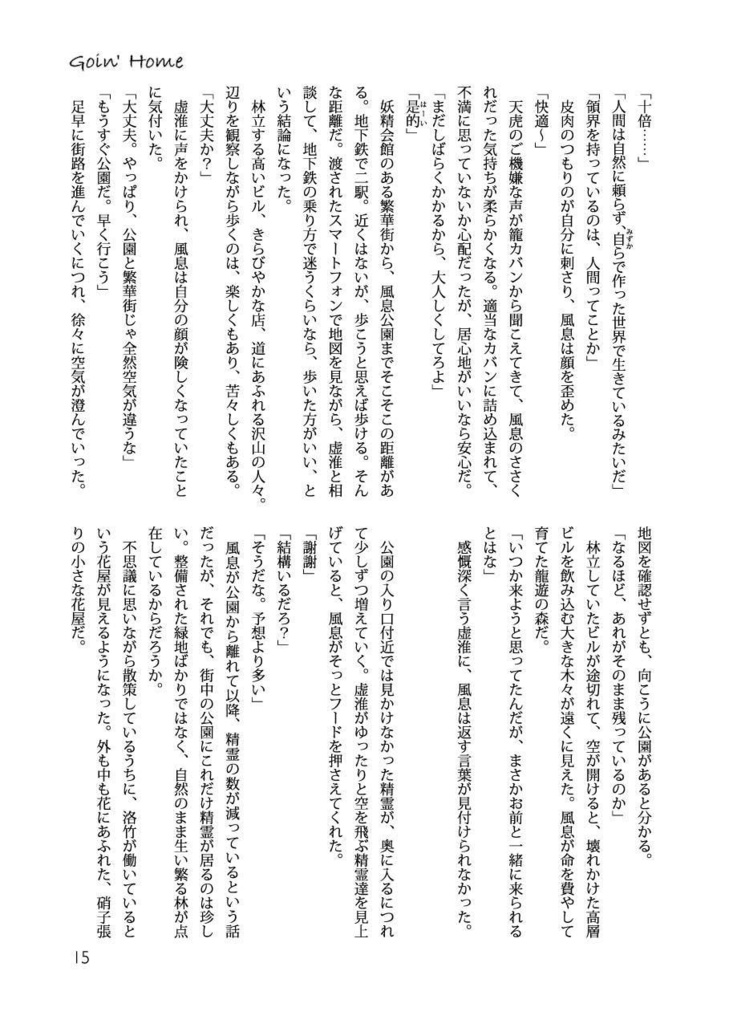 Goin' Home
「十倍……」
「人間は自然に頼らず、自らで作った世界で生きているみたいだ」
みずか
「領界を持っているのは、人間ってことか」
皮肉のつもりのが自分に刺さり、風息は顔を歪めた。
「快適〜」
天虎のご機嫌な声が籠カバンから聞こえてきて、風息のささく
れだった気持ちが柔らかくなる。適当なカバンに詰め込まれて、
不満に思っていないか心配だったが、居心地がいいなら安心だ。
「まだしばらくかかるから、大人しくしてろよ」
「是的」
はーい
妖精会館のある繁華街から、風息公園までそこそこの距離があ
る。地下鉄で二駅。近くはないが、歩こうと思えば歩ける。そん
な距離だ。渡されたスマートフォンで地図を見ながら、虚淮と相
談して、地下鉄の乗り方で迷うくらいなら、歩いた方がいい、と
いう結論になった。
林立する高いビル、きらびやかな店、道にあふれる沢山の人々。
辺りを観察しながら歩くのは、楽しくもあり、苦々しくもある。
「大丈夫か？」
虚淮に声をかけられ、風息は自分の顔が険しくなっていたこと
に気付いた。
「大丈夫。やっぱり、公園と繁華街じゃ全然空気が違うな」
「もうすぐ公園だ。早く行こう」
足早に街路を進んでいくにつれ、徐々に空気が澄んでいった。
地図を確認せずとも、向こうに公園があると分かる。
「なるほど、あれがそのまま残っているのか」
林立していたビルが途切れて、空が開けると、壊れかけた高層
ビルを飲み込む大きな木々が遠くに見えた。風息が命を費やして
育てた龍遊の森だ。
「いつか来ようと思ってたんだが、まさかお前と一緒に来られる
とはな」
感慨深く言う虚淮に、風息は返す言葉が見付けられなかった。
公園の入り口付近では見かけなかった精霊が、奥に入るにつれ
て少しずつ増えていく。虚淮がゆったりと空を飛ぶ精霊達を見上
げていると、風息がそっとフードを押さえてくれた。
「謝謝」
「結構いるだろ？」
「そうだな。予想より多い」
風息が公園から離れて以降、精霊の数が減っているという話
だったが、それでも、街中の公園にこれだけ精霊が居るのは珍し
い。整備された緑地ばかりではなく、自然のまま生い繁る林が点
在しているからだろうか。
不思議に思いながら散策しているうちに、洛竹が働いていると
いう花屋が見えるようになった。外も中も花にあふれた、硝子張
りの小さな花屋だ。
15